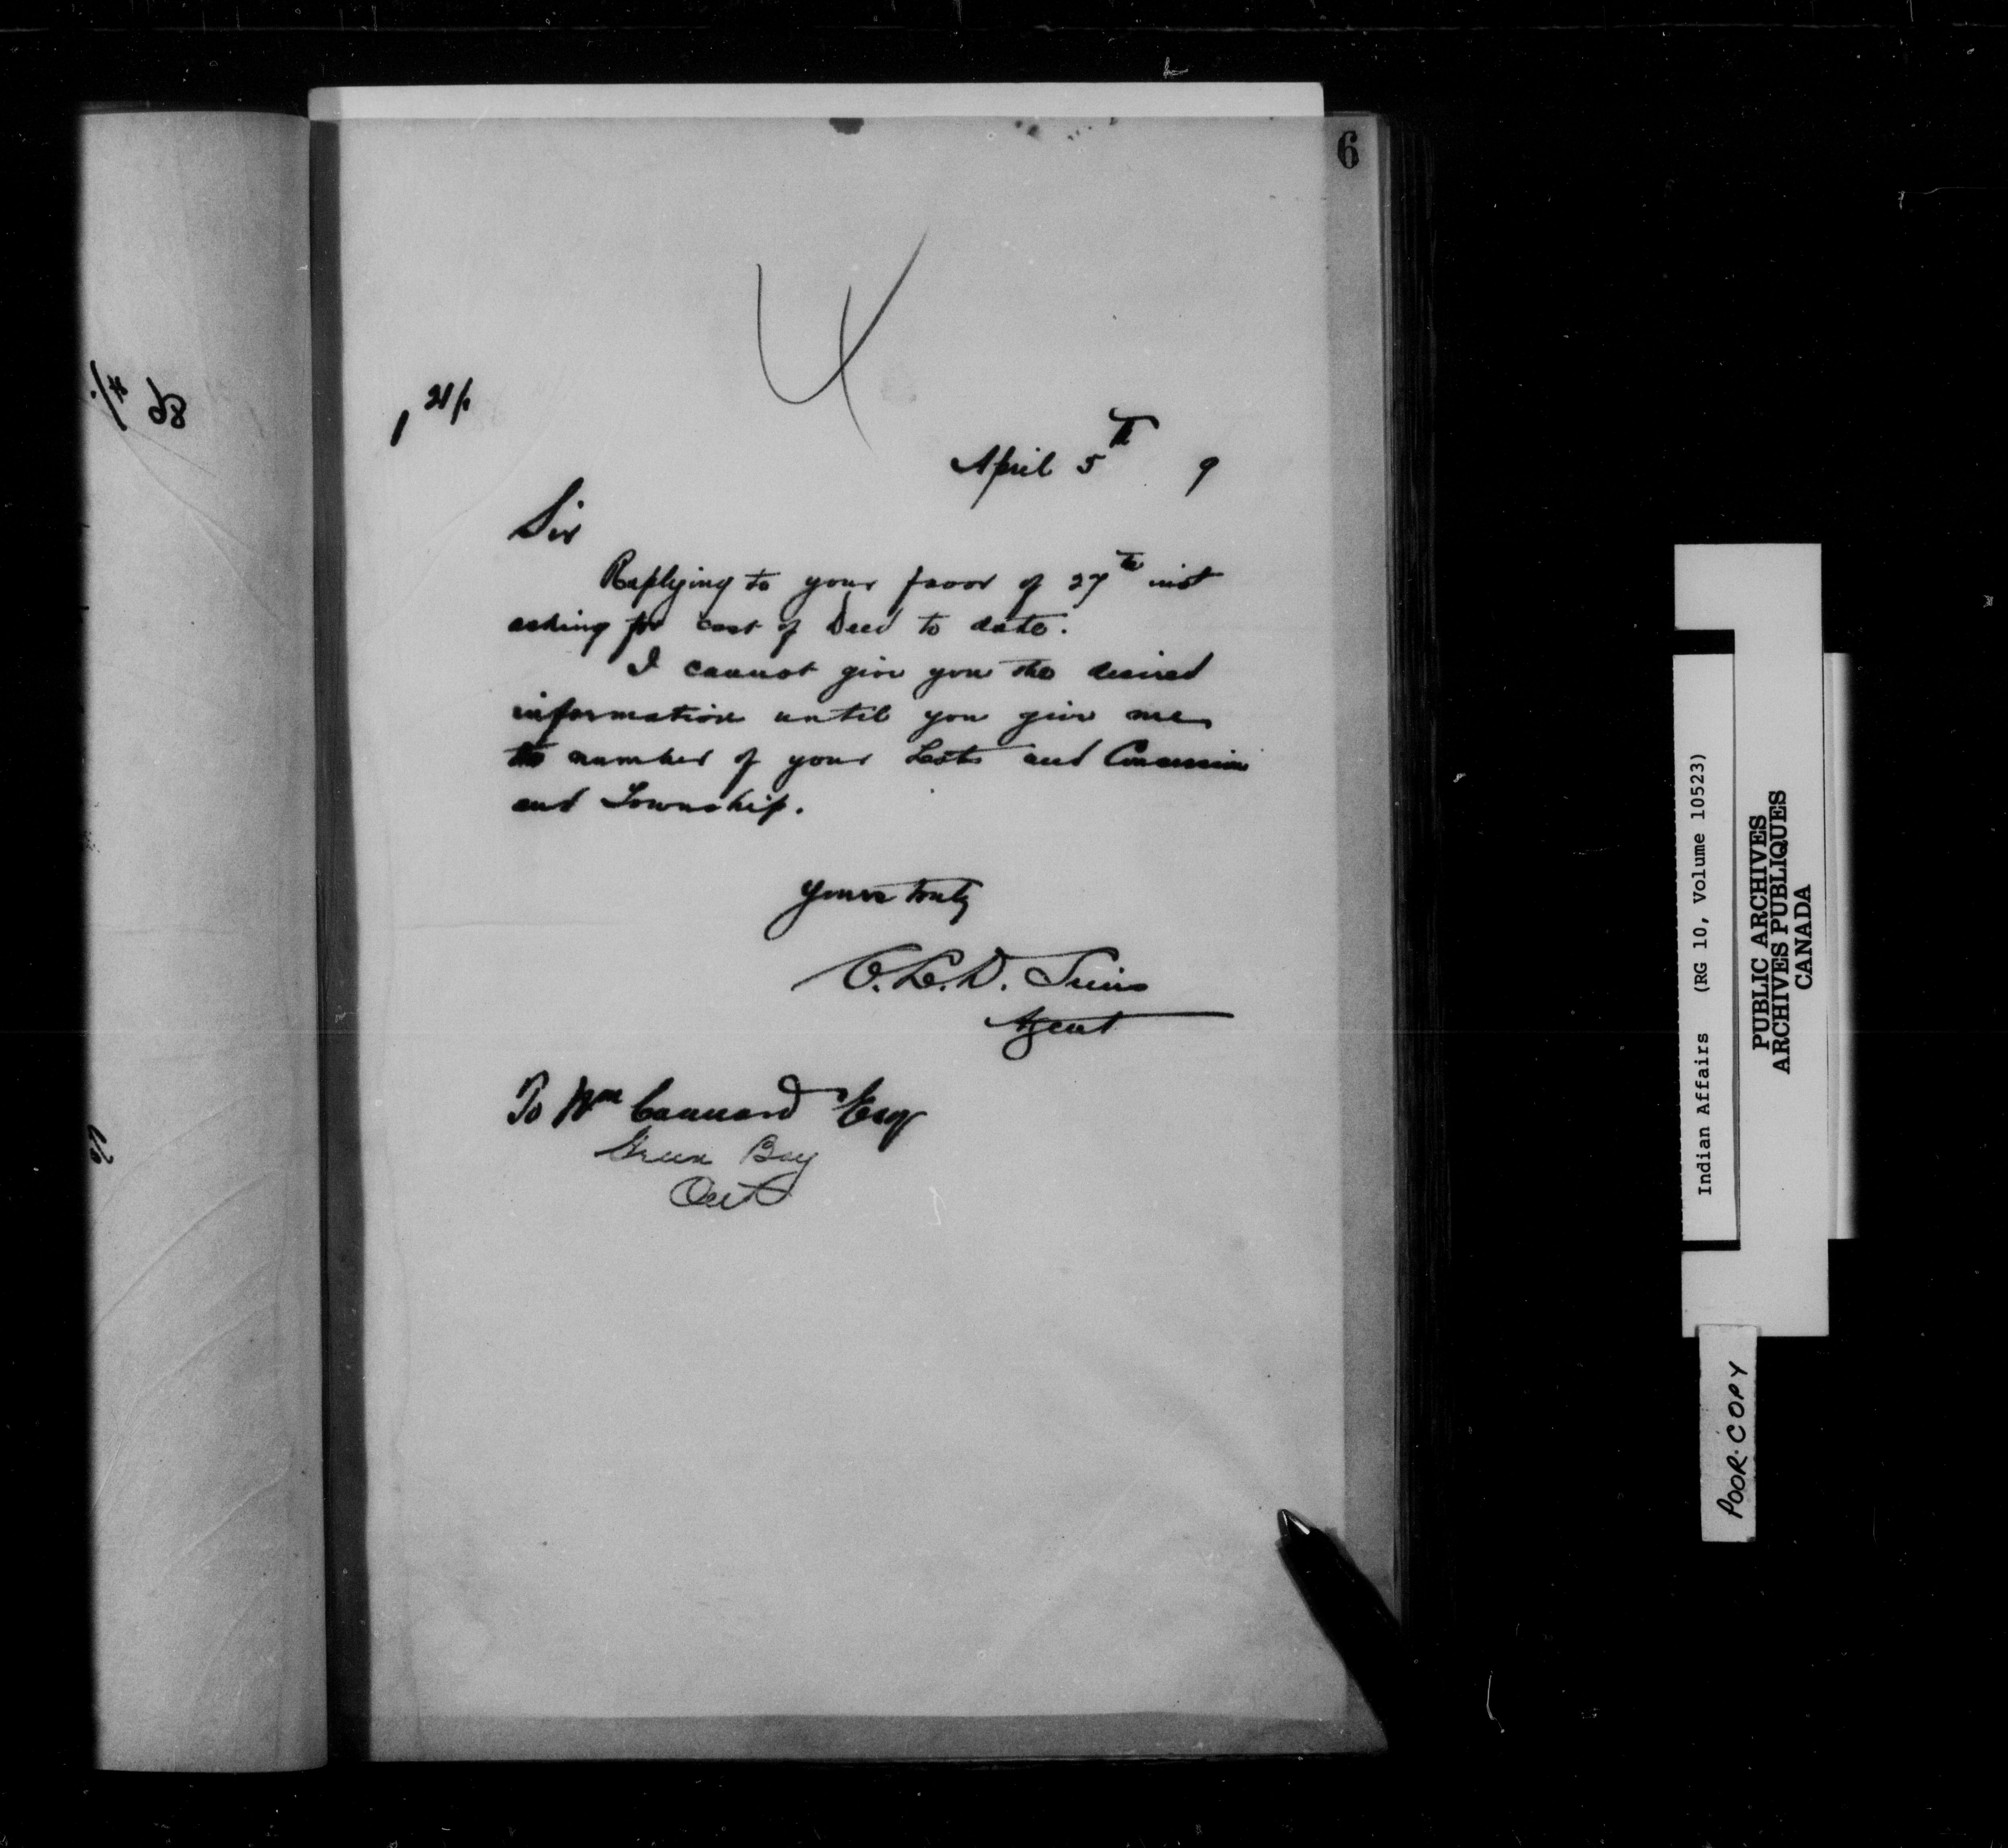 6
4
April 5th 9
Sir
Replying to your favor of 27th inst
asking for cost of Deed to date.
I cannot give you the desired
information until you give me
the number of your Lots and Concession
and Township.
Yours truly
C.L.D. Sims
Agent
To Wm Cannard Esq
Green Bay
Ont
Indian Affairs (RG 10, Volume 10523)
PUBLIC ARCHIVES
ARCHIVES PUBLIQUES
CANADA
POOR COPY